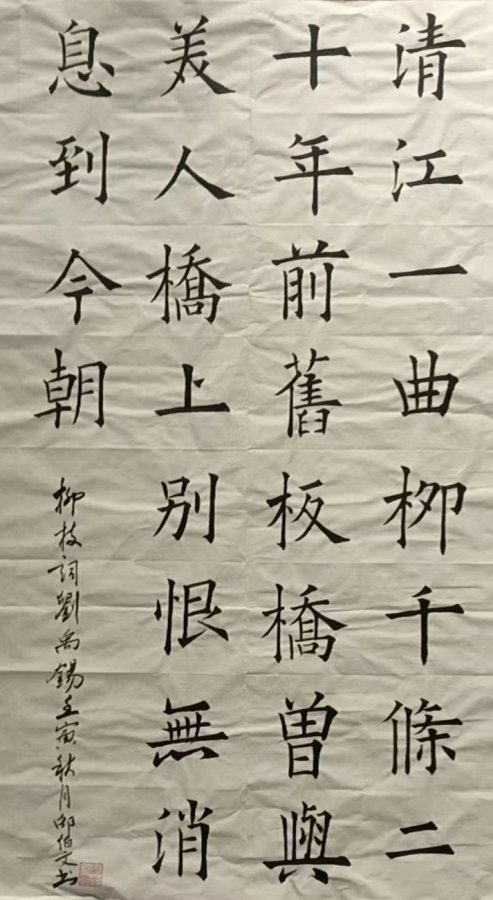 清江一曲栁千條二
十年前舊板橋曾與
美人橋上別恨無消
息到今朝
柳枝詞劉禹錫壬寅秋月邵伯文书